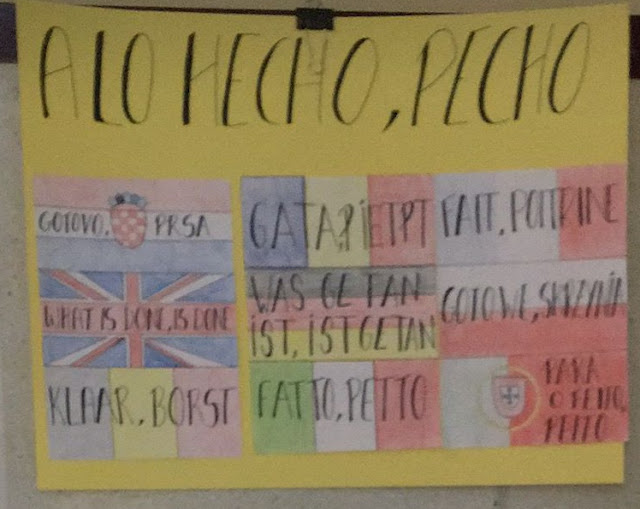 A LO HECHO, PECHO
GOTOVO, PRSA
GATA, PIETPT
FAIT, POITRINE
WHAT IS DONE, IS DONE
WAS GETAN
IST, IST GETAN
GOTOWE, SKRZYNIA
KLAAR, BORST
FATTO, PETTO
PARA
O FEITO,
PEITO